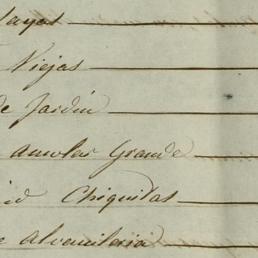 Viejas
de Jardin
amolar Grande
id Chiquitas
de alvanileria